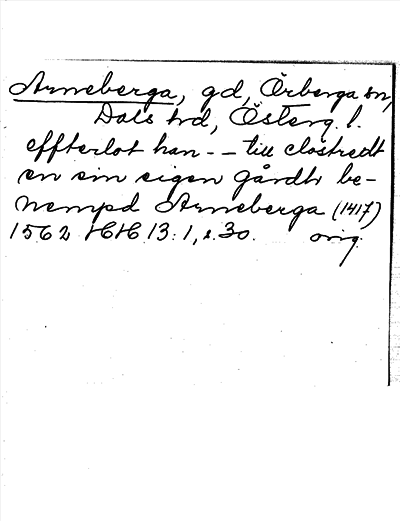 Arneberga, gd, Örberga sn,
Dals hd, Österg. l.
effterlot han - - till clostredt
en sin eigen gårdh be-
nempd Arneberga (1417)
1562 HH 13:1, s. 30. orig.